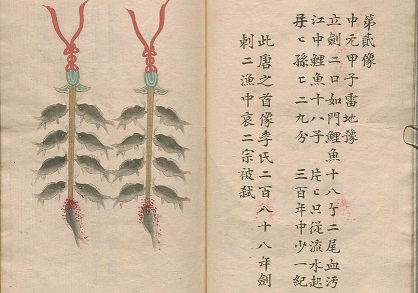 第貳像
中元甲子雷地豫
立劍二口如門鯉魚十八亇二尾血污
江中鯉魚十八子 片〻只從流水起
〻孫〻二九分 三百年中少一紀
此唐之首像李氏二百八十八年劍
刺二漁中哀二宗被弑